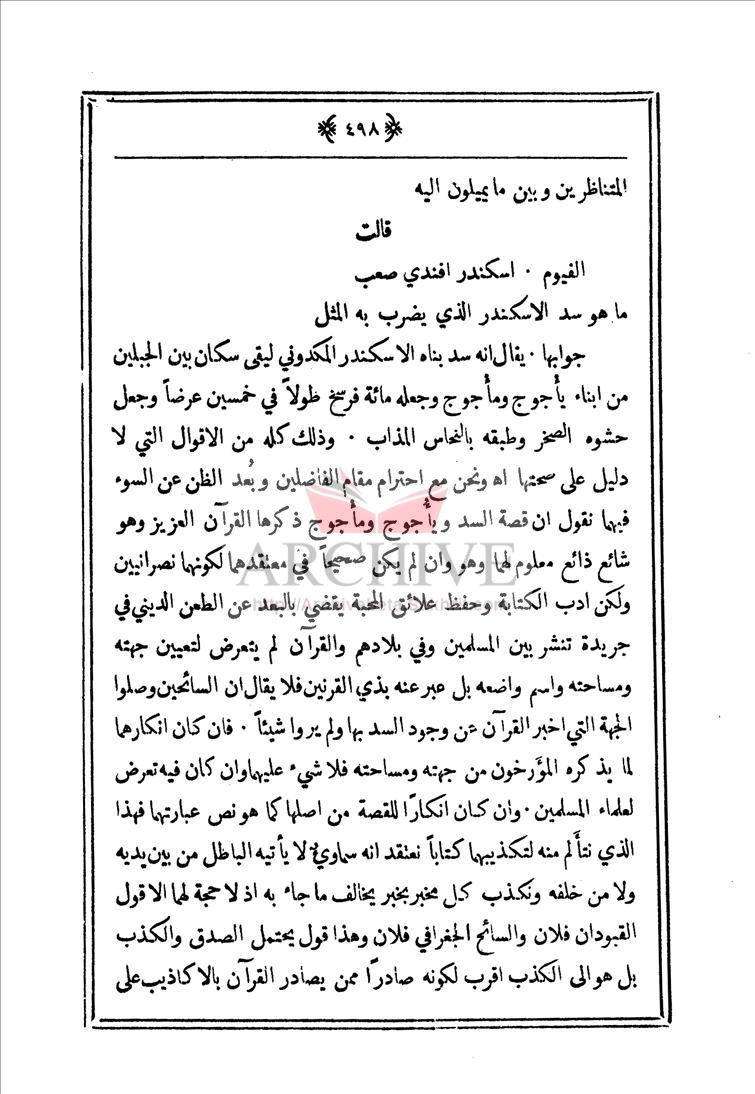 ٤٩٨
المتناظرين وبين ما يميلون اليه
قالت
الفيوم . اسكندر افندي صعب
ما هو سد الاسكندر الذي يضرب به المثل
جوابها . يقال انه سد بناه الاسكندر المكدوني ليقى سكان بين الجبلين
من ابناء يأجوج ومأجوج وجعله مائة فرسخ طولاً في خمسين عرضاً وجعل
حشوه الصخر وطبقه بالنحاس المذاب . وذلك كله من الاقوال التي لا
دليل على صحتها اه ونحن مع احترام مقام الفاضلين وبُعد الظن عن السوء
فيهما نقول ان قصة السد ويأجوج ومأجوج ذكرها القرآن العزيز وهو
شائع ذائع معلوم لهما وهو وان لم يكن صحيحاً في معتقدهما لكونهما نصرانيين
ولكن ادب الكتابة وحفظ علائق المحبة يقضي بالبعد عن الطعن الديني في
جريدة تنشر بين المسلمين وفي بلادهم والقرآن لم يتعرض لتعيين جهته
ومساحته واسم واضعه بل عبر عنه بذي القرنين فلا يقال ان السائحين وصلوا
الجهة التي اخبر القرآن عن وجود السد بها ولم يروا شيئاً . فان كان انكارهما
لما يذكره المؤرخون من جهته ومساحته فلا شيء عليهما وان كان فيه تعرض
لعلماء المسلمين . وان كان انكارًا للقصة من اصلها كما هو نص عبارتهما فهذا
الذي نتألم منه لتكذيبهما كتاباً نعتقد انه سماوي لا يأتيه الباطل من بين يديه
ولا من خلفه ونكذب كل مخبر بخبر يخالف ما جاء به اذ لا حجة لهما الا قول
القبودان فلان والسائح الجغرافي فلان وهذا قول يحتمل الصدق والكذب
بل هو الى الكذب اقرب لكونه صادرًا ممن يصادر القرآن بالاكاذيب على
ARCHIVE